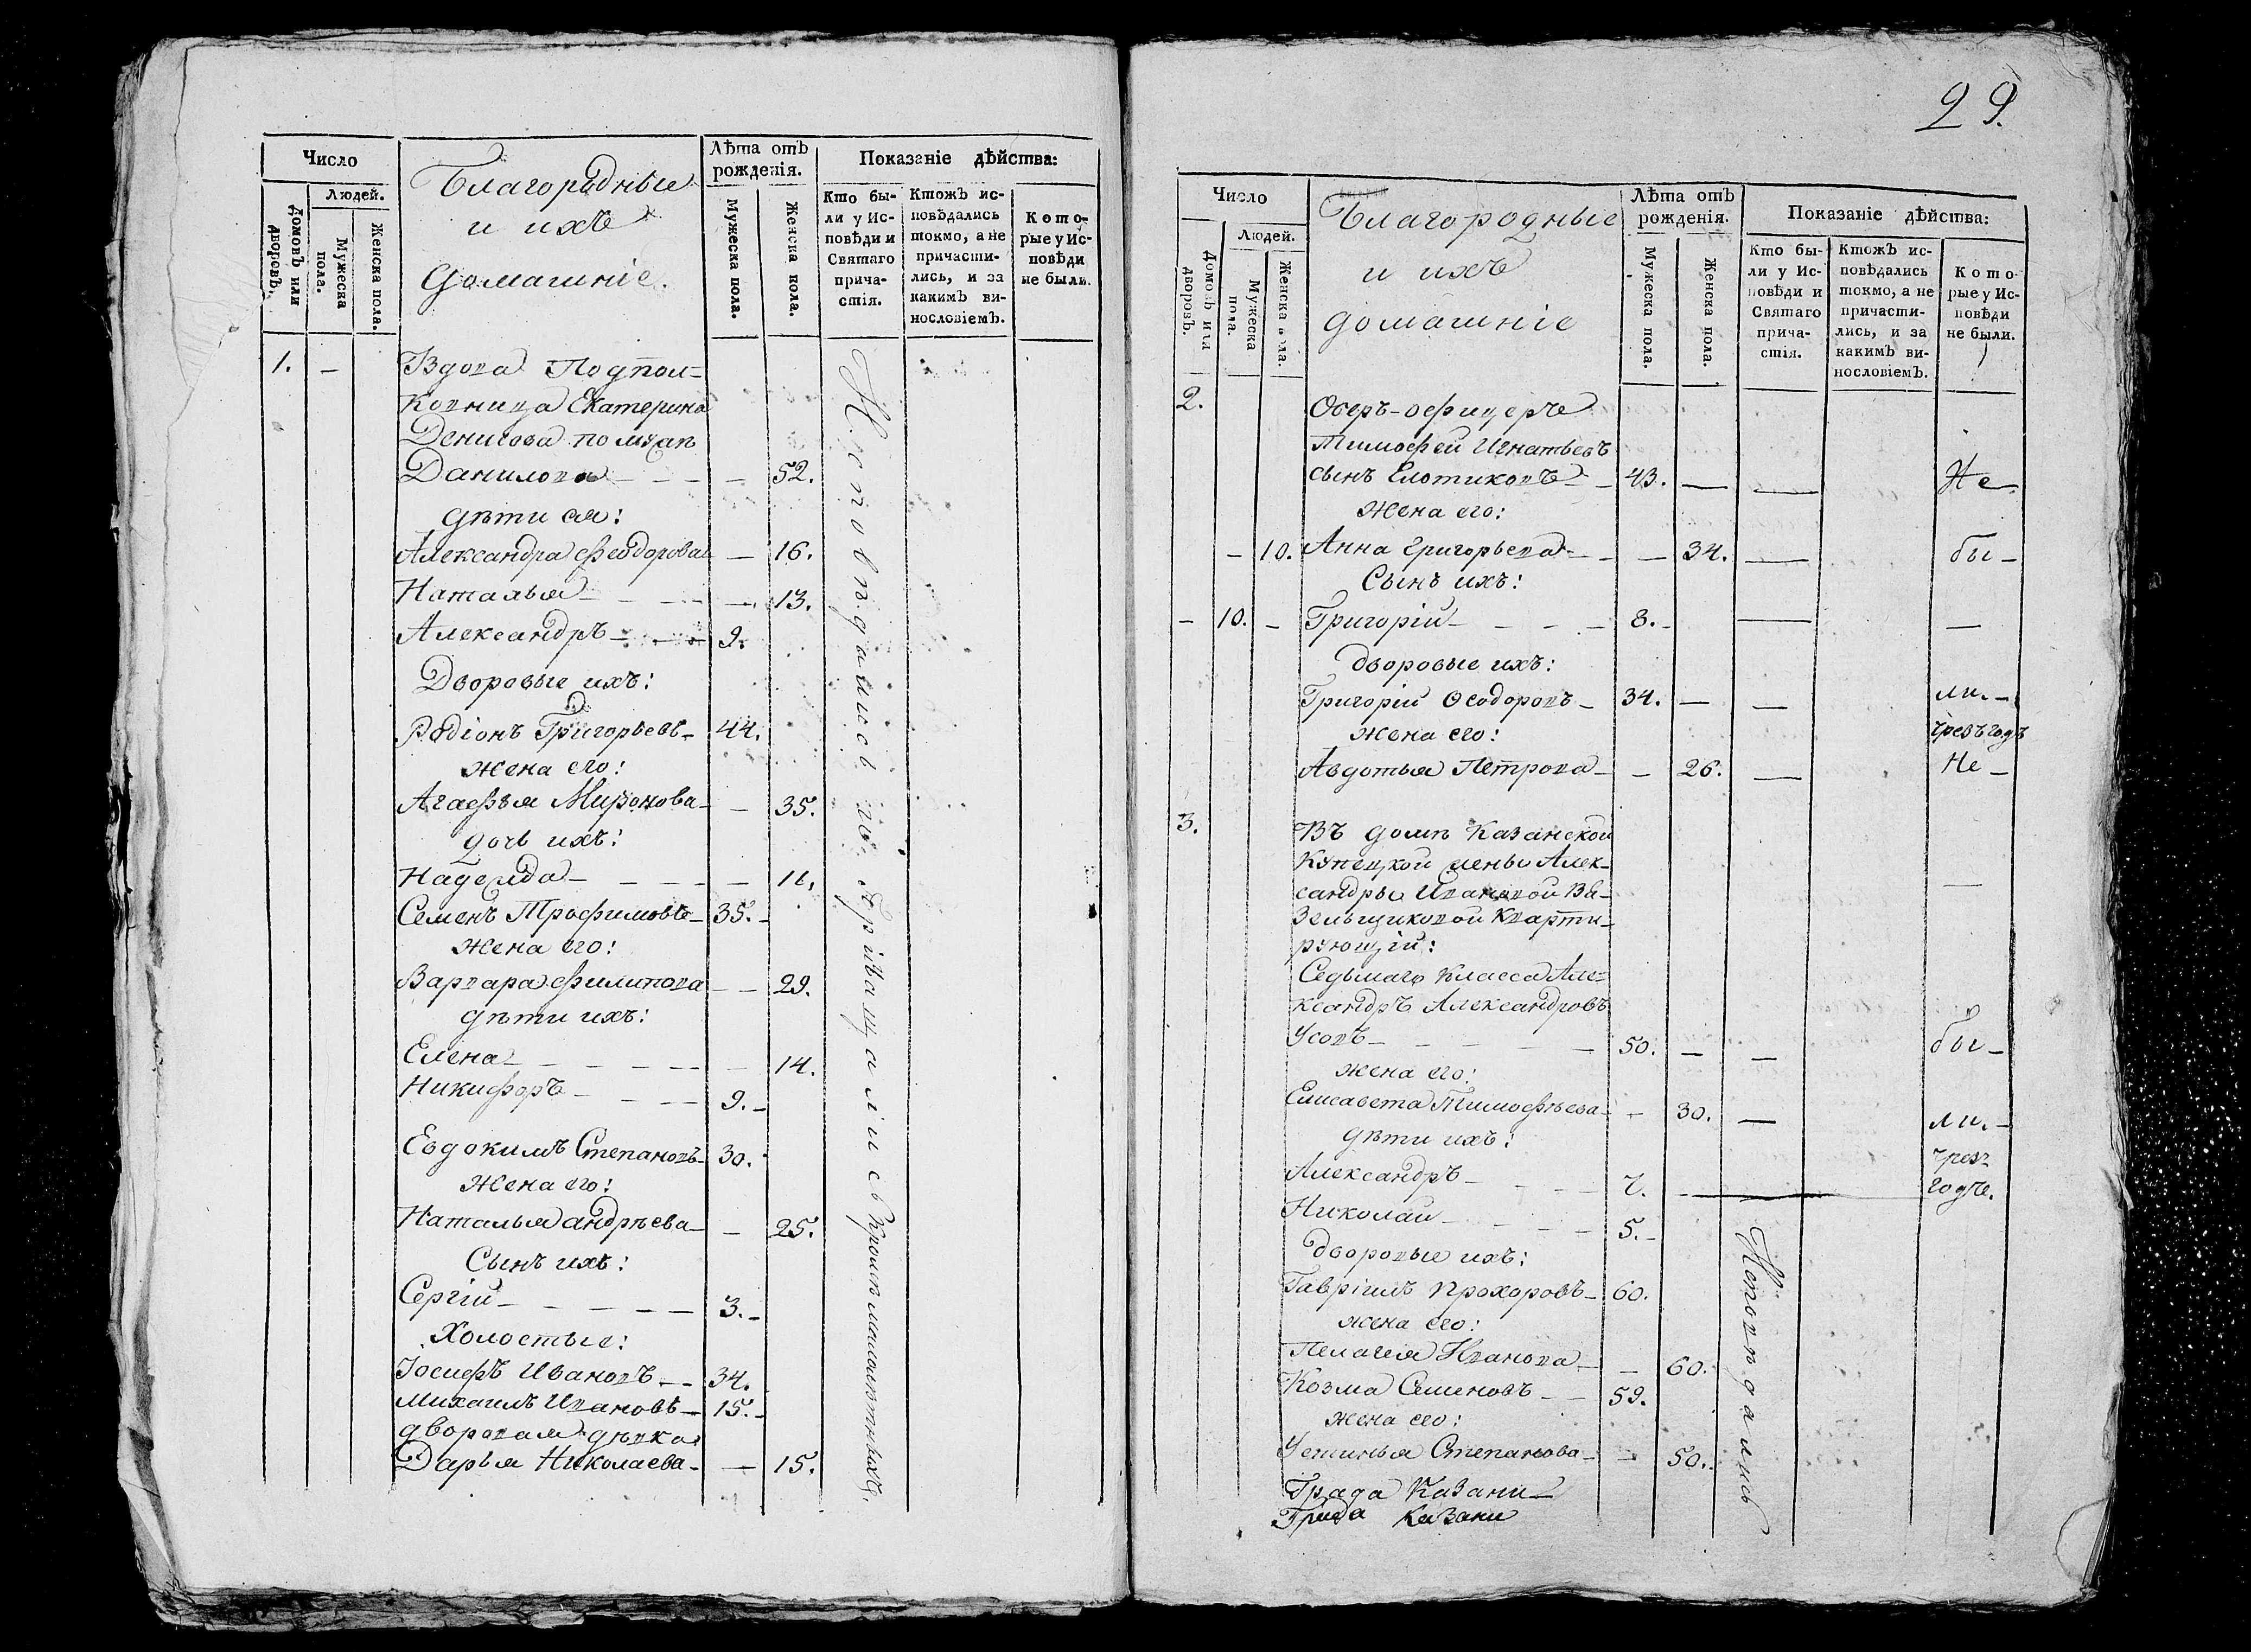 Число
Людей.
Домовъ или дворовъ.
Мужеска пола.
Женска пола.
Благородные
и ихъ
домашніе.
Лѣта отъ рожденія.
Мужеска пола.
Женска пола.
Показаніе дѣйства:
Кто бы-
ли у Ис-
повѣди и
Святаго
прича-
стія.
Ктожъ ис-
повѣдались
токмо, а не
причасти-
лись, и за
какимъ ви-
нословіемъ.
Кото-
рые у Ис-
повѣди
не были.
1. — Вдова Подпол-
ковница Екатерина
Денисова по мужѣ
Данилова — — — — 52.
дѣти ея:
Александра Феодорова — 16.
Наталья — — — — 13.
Александръ — — — 9.
Дворовые ихъ:
Родіонъ Григорьевъ — 44.
жена его:
Агафья Миронова — — 35.
дочь ихъ:
Надежда — — — — — 11.
Семенъ Трофимовъ — 35. —
жена его:
Варвара Филипова — — 29.
дѣти ихъ:
Елена — — — — — 14.
Никифоръ — — — — 9. —
Евдокимъ Степановъ — 30.
жена его:
Наталья Андрѣева — — 25.
Сынъ ихъ:
Сергій — — — — — 3. —
Холостые:
Іосифъ Ивановъ — — 34.
Михаилъ Ивановъ — 15. —
дворовая дѣвка
Дарья Николаева — — 15.
Исповѣдались и Пріобщались кромѣ малалѣтныхъ.
29.
Число
Людей.
Домовъ или дворовъ.
Мужеска пола.
Женска пола.
Благородные
и ихъ
домашніе
Лѣта отъ рожденія.
Мужеска пола.
Женска пола.
Показаніе дѣйства:
Кто бы-
ли у Ис-
повѣди и
Святаго
прича-
стія.
Ктожъ ис-
повѣдались
токмо, а не
причасти-
лись, и за
какимъ ви-
нословіемъ.
Кото-
рые у Ис-
повѣди
не были.
2. Оберъ-офицеръ
Тимофей Игнатьевъ
сынъ Елотиковъ — 43. — — Не
жена его:
— 10. Анна Григорьева — — — 34. — бы —
Сынъ ихъ:
— 10. — Григорій — — — — 8. — — —
дворовые ихъ:
Григорій Ѳеодоровъ — 34. — — ли. —
жена его: чрезъ годъ
Авдотья Петрова — — 26. — Не —
3. Въ домѣ Казанской
Купецкой жены Алек-
сандры Ивановой Вя-
зельщиковой кварти-
рующій:
Седьмаго класса Але-
ксандръ Александровъ
Усовъ — — — — — 50. — — бы —
жена его:
Елисавета Тимофѣева — — 30. — ли. —
дѣти ихъ: чрезъ
Александръ — — — — 7. — годъ.
Николай — — — — 5. —
дворовые ихъ:
Гавріилъ Прохоровъ — 60.
жена его:
Пелагея Иванова — — 60.
Козма Семеновъ — — 59.
жена его:
Устинья Степанова — — 50.
Исповѣдались
Града Казани —
Града Казани